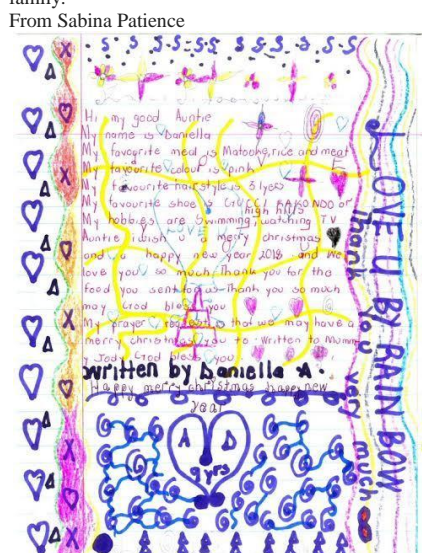 family.
From Sabina Patience
S S S-S-S-S S S-S S-S-S
Hi my good Auntie
My name is Daniella
My favourite meal is Matooke, rice and meat
My favourite colour is pink
My favourite hairstyle is 3 lyes
My favourite shoe is GUCCI KAKONDO or
high hills
My hobbies are Swimming, watching TV
Auntie I wish u a merry christmas
and a happy new year 2018 and We
love you so much Thank you for the
food you sent to us Thank you so much
may God bless you
My prayer request is that we may have a
merry christmas you to. Written to Mummy
Jody God bless you
Written by Daniella A.
Happy merry christmas happy new
year
A D
9yrs
I LOVE U BY RAIN BOW
Thank you very much